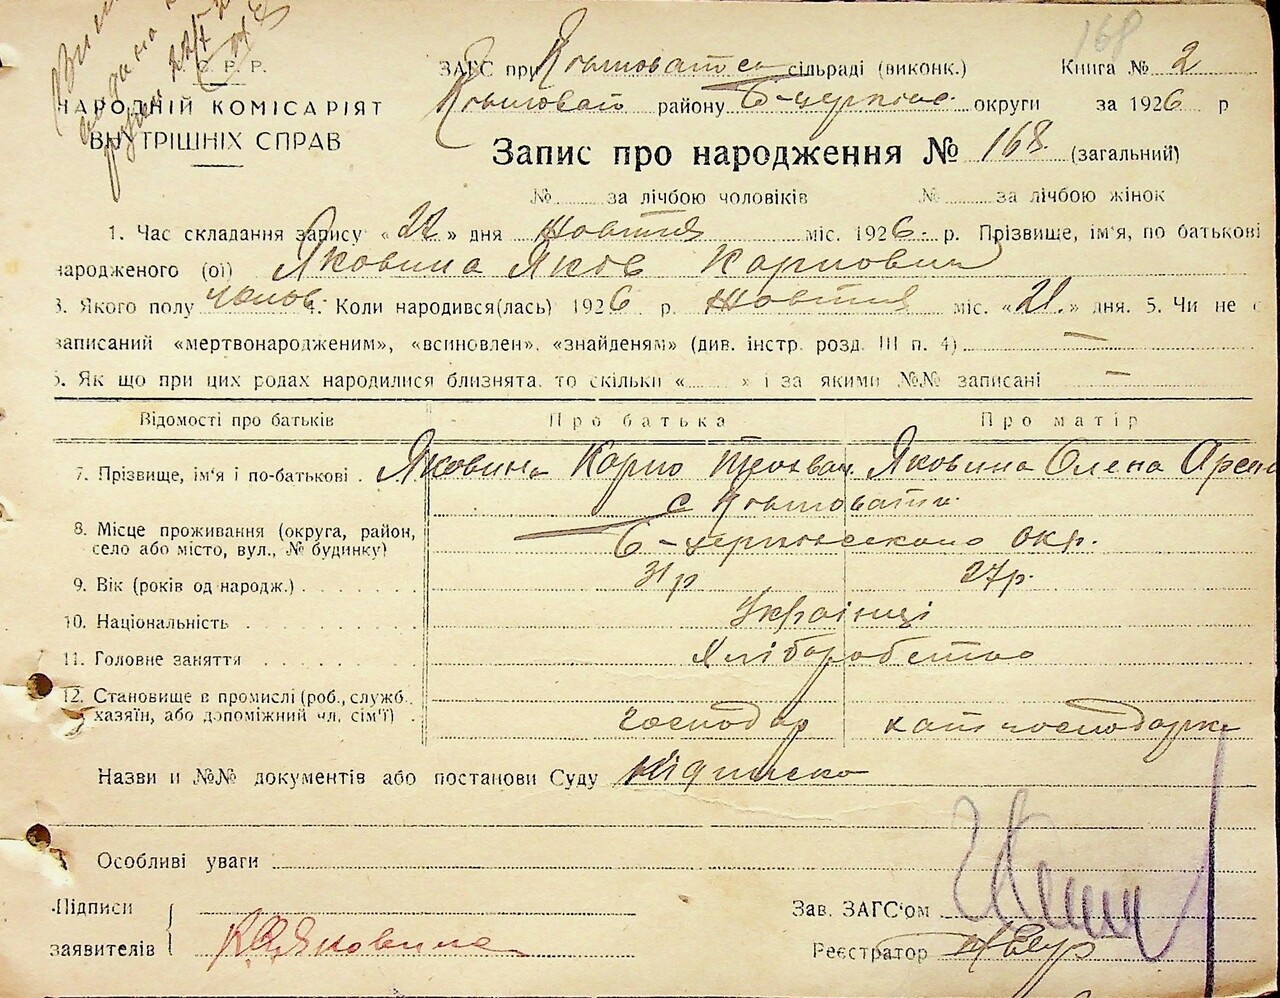 168
У. С. Р. Р.
НАРОДНІЙ КОМІСАРІЯТ
ВНУТРІШНІХ СПРАВ
ЗАГС при сільраді (виконк.) Книга № 2
району Б-церків. округи за 1926 р
Запис про народження № 168 (загальний)
№ за лічбою чоловіків № за лічбою жінок
1. Час складання запису «22» дня жовтня міс. 1926 р. Прізвище, ім'я, по батькові
народженого (ої) Яковина Яков Карпович
3. Якого полу чолов. 4. Коли народився(лась) 1926 р. жовтня міс. «21.» дня. 5. Чи не є
записаний «мертвонародженим», «всиновлен», «знайденям» (див. інстр. розд. III п. 4) —
6. Як що при цих родах народилися близнята, то скільки « » і за якими №№ записані —
Відомості про батьків Про батька Про матір
7. Прізвище, ім'я і по-батькові Яковина Карпо Яковина Олена
с
8. Місце проживання (округа, район,
село або місто, вул., № будинку) Б-церківського окр.
9. Вік (років од народж.) 31 р 27 р.
10. Національність Українці
11. Головне заняття Хліборобство
12. Становище в промислі (роб., служб.
хазяїн, або допоміжний чл. сім'ї) господар господарка
Назви и №№ документів або постанови Суду
Особливі уваги
Підписи
заявителів Яковина
Зав. ЗАГС'ом
Реєстратор